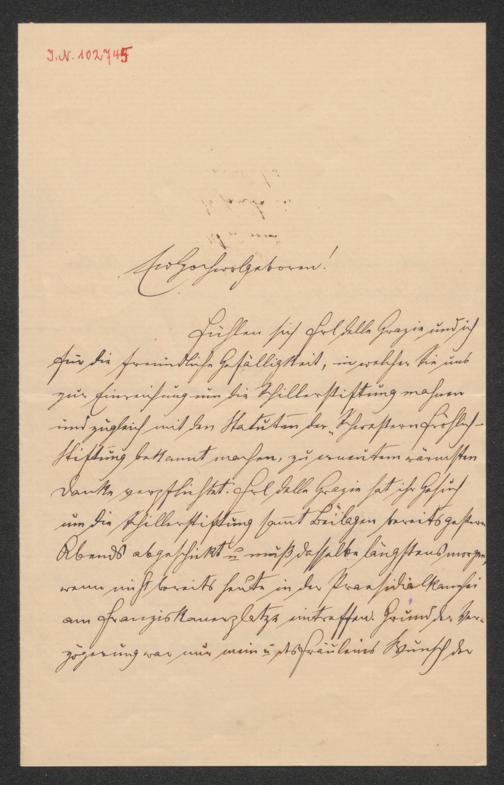 I.N. 102745
Ew Hochwolgeboren!
Fühlen sich Frl delle Grazie und ich
für die freundliche Gefälligkeit, in welcher Sie uns
zur Einreichung um die Schillerstiftung mahnen
und zugleich mit den Statuten der "Schwestern Fröhlich-
Stiftung bekannt machen, zu erneutem wärmsten
Danke verpflichtet. Frl delle Grazie hat ihr Gesuch
um die Schillerstiftung sammt Beilagen bereits gestern
Abends abgeschickt u muß dasselbe längstens morgen,
wenn nicht bereits heute in der Praesidialkanzlei
am Franziskanerplatze eintreffen. Grund der Ver-
zögerung war nur mein u des Fräuleins Wunsch der